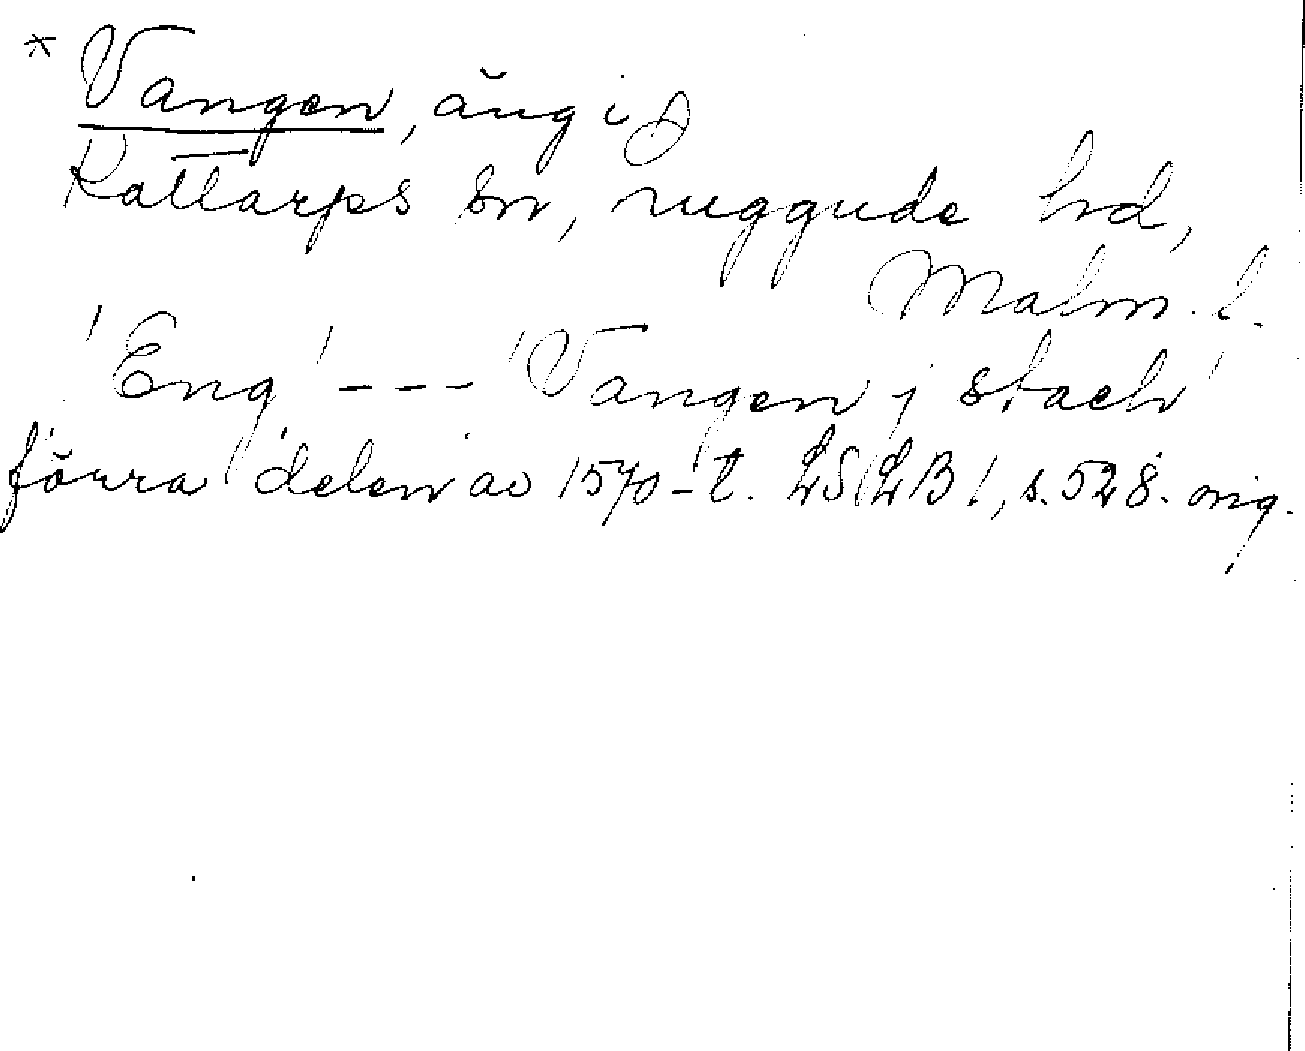 * Vangen, äng i
Kattarps sn, Luggude hd,
Malm. l.
'Eng' --- 'Vangen j stach'
förra delen av 1570-t. LSLB 1, s. 528. orig.